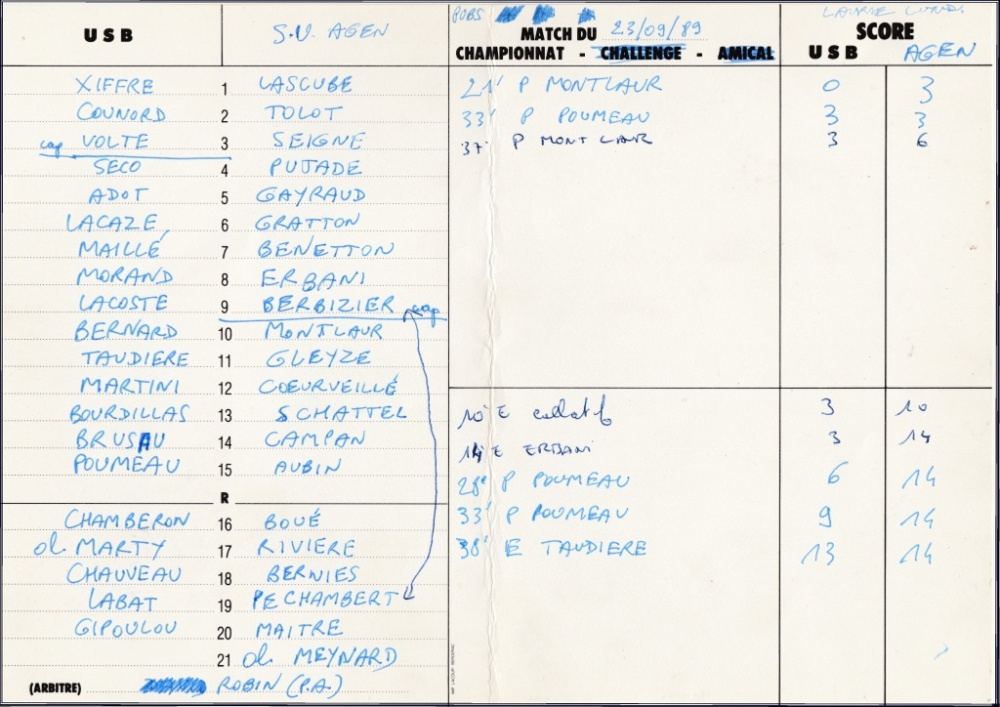 USB S.U. AGEN
XIFFRE 1 LASCUBE
COUNORD 2 TOLOT
cap VOLTE 3 SEIGNE
SECO 4 PUJADE
ADOT 5 GAYRAUD
LACAZE 6 GRATTON
MAILLÉ 7 BENETTON
MORAND 8 ERBANI
LACOSTE 9 BERBIZIER cap
BERNARD 10 MONTLAUR
TAUDIERE 11 GLEYZE
MARTINI 12 COEURVEILLÉ
BOURDILLAS 13 SCHATTEL
BRUSAU 14 CAMPAN
POUMEAU 15 AUBIN
R
CHAMBERON 16 BOUÉ
ol. MARTY 17 RIVIERE
CHAUVEAU 18 BERNIES
LABAT 19 PECHAMBERT
GIPOULOU 20 MAITRE
21 ol. MEYNARD
(ARBITRE) ROBIN (P.A.)
MATCH DU 23/09/89
CHAMPIONNAT - CHALLENGE - AMICAL
SCORE
USB AGEN
21' P MONTLAUR 0 3
33' P POUMEAU 3 3
37' P MONTLAUR 3 6
10' E collatif 3 10
14' E ERBANI 3 14
28' P POUMEAU 6 14
33' P POUMEAU 9 14
38' E TAUDIERE 13 14